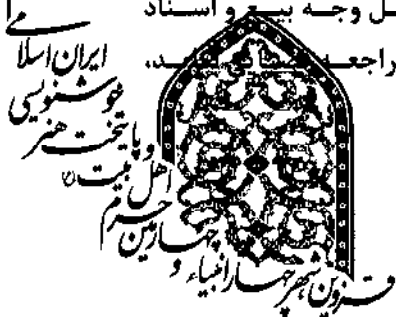 ل وجه بیع و اسناد
قزوین، شهر چهار انبیاء و
چهارمین حرم
اهل بیت(ع)
و پایتخت هنر
خوشنویسی
ایران اسلامی